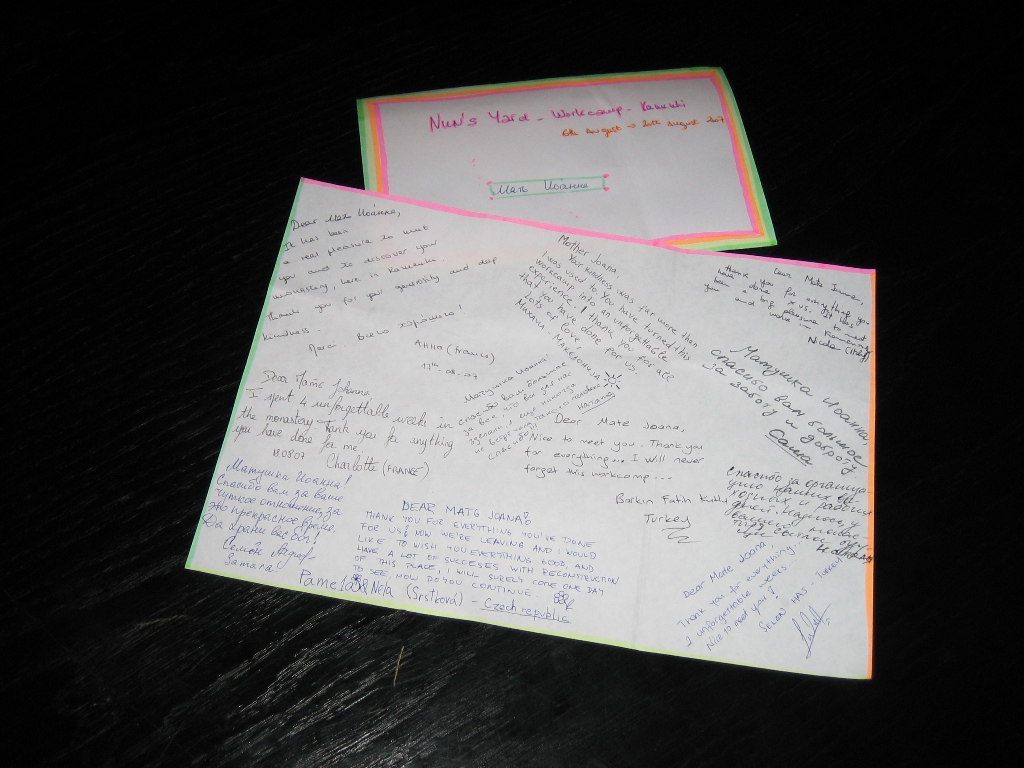 Nun's Yard - Workcamp -
6th August → 20th August 2007
Мать Иоанна
Dear Мать Иоанна,
It has been
a real pleasure to meet
you and to discover your
monastery, here in
Thank you for your generosity and deep
kindness.
Всего хорошего!
Анна (France)
17th-08-07
Mother Joana,
Your kindness was far more than
I was used to. You have turned this
workcamp into an unforgettable
experience! I thank you for all
that you have done for us.
Lots of love -
Македониja
Dear Mate Ioanna,
thank you for everything you
have done x us. It was
been a big pleasure to meet
you and work in
Nicola (Italy)
Матушка Иоанна,
спасибо вам большое
за заботу и доброту.
Саша
Матушка Иоанна!
спасибо вам большое
за все, что вы для нас
сделали,
спасибо!!!
Наташа
Dear Mame Johanna
I spent 4 unforgettable weeks in
the monastery. Thank you for anything
you have done for me.
18.08.07
Charlotte (FRANCE)
Dear Mate Joana,
Nice to meet you. Thank you
for everything... I will never
forget this workcamp...
Barkin Fatih Kutlu
Turkey
Матушка Иоанна!
Спасибо вам за ваше
чуткое отношение, за
это прекрасное время.
Да храни вас бог!
Семен
Samara
DEAR MATG JOANA!
THANK YOU FOR EVERYTHING YOU'VE DONE
FOR US! NOW WE'RE LEAVING AND I WOULD
LIKE TO WISH YOU EVERYTHING GOOD, AND
HAVE A LOT OF SUCCESSES WITH RECONSTRUCTION
OF THIS PLACE, I WILL SURELY COME ONE DAY
TO SEE, HOW DO YOU CONTINUE.
Nela (Srstková) - Czech republic
спасибо за организа-
цию наших
и рабочих
дней.
Dear Mate Joana,
Thank you for everything!
2 unforgettable weeks
Nice to meet you!
SELEN HAS, Turkey